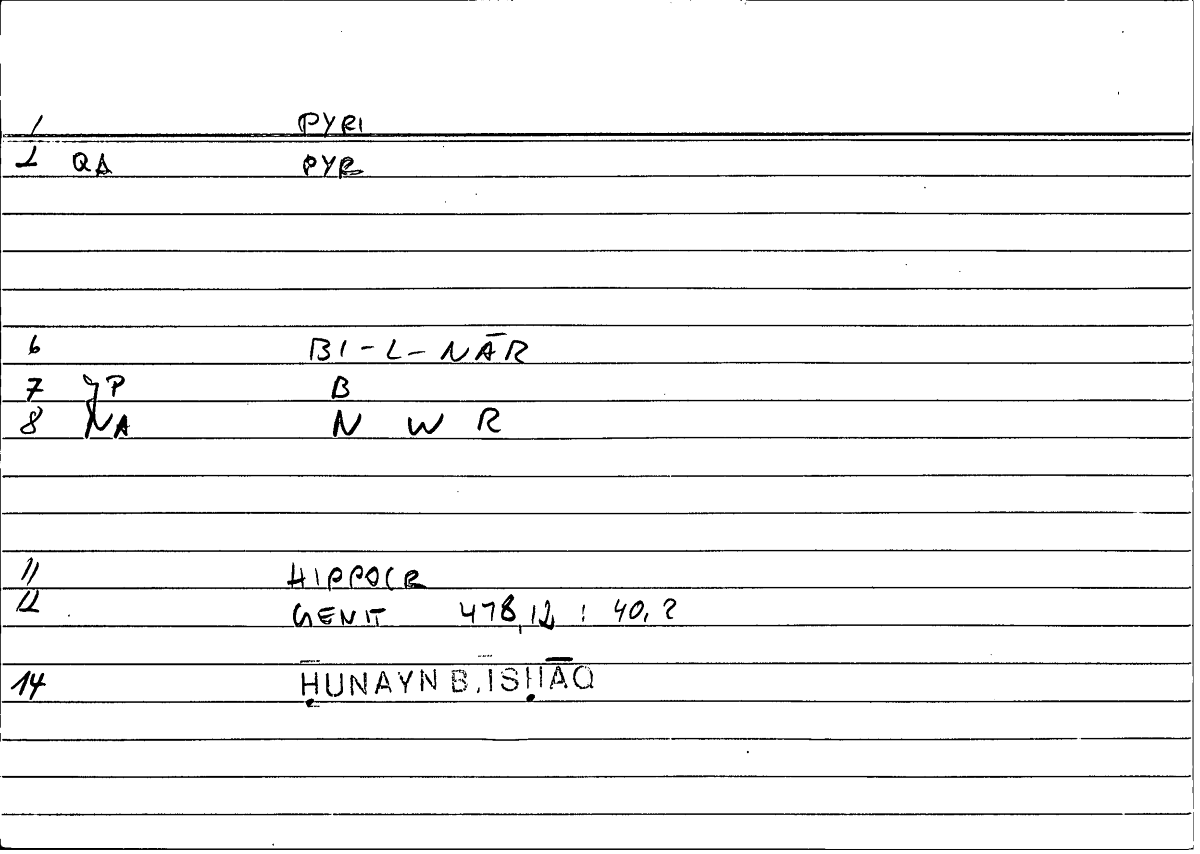 1 PYRI
2 QA PYR
6 BI-L-NĀR
7 JP B
8 NA N W R
11 HIPPOCR
12 GENIT 478,12 : 40,2
14 ḤUNAYN B. ISḤĀQ